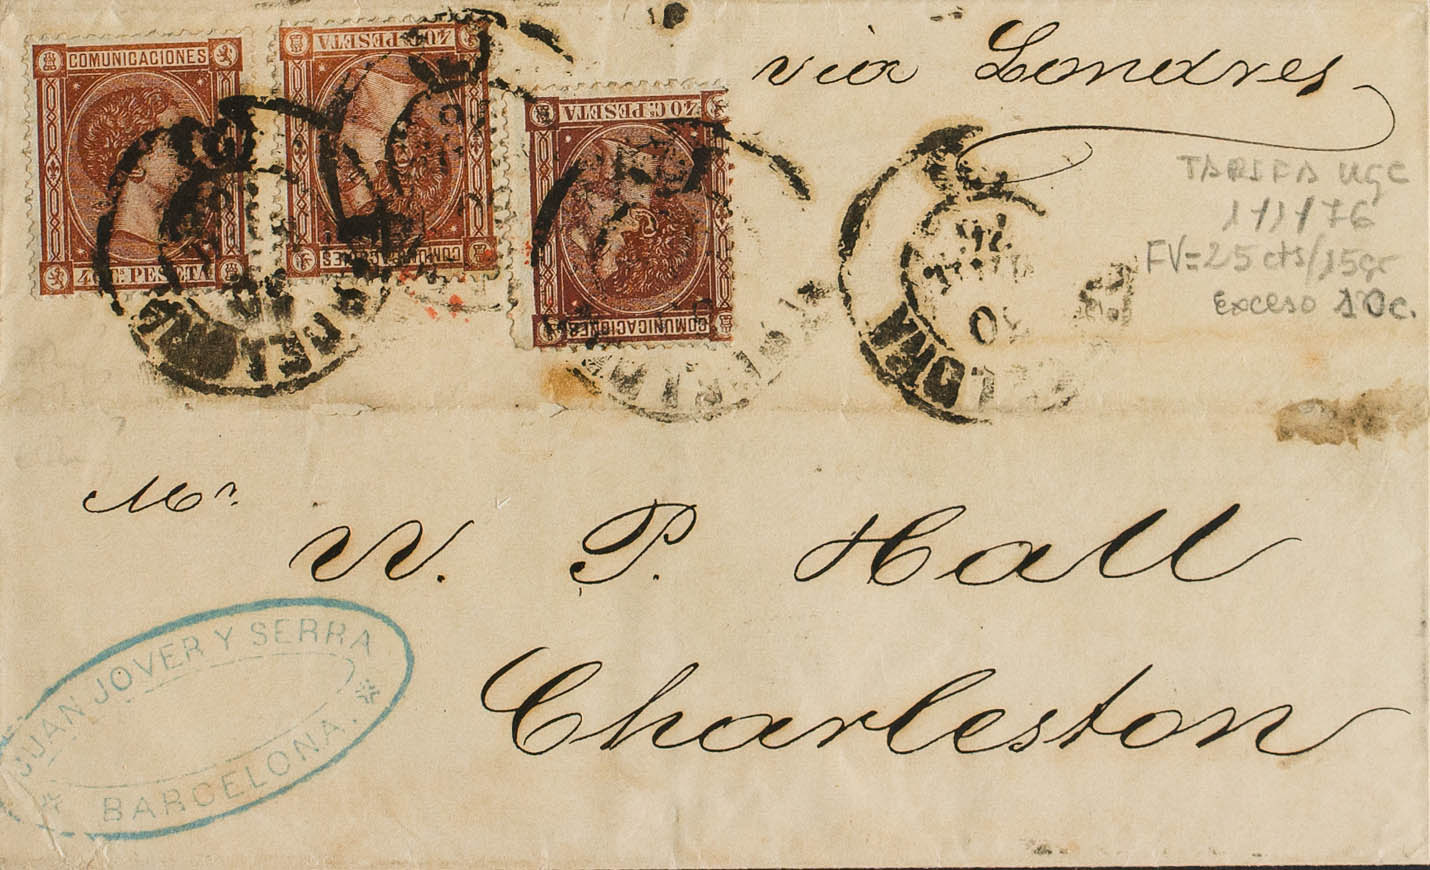 COMUNICACIONES
40 Cs PESETA
40 Cs PESETA
COMUNICACIONES
40 Cs PESETA
COMUNICACIONES
via Londres
TARIFA UGC
1/1/76
FV=25 cts/15gr
Exceso 10c.
BARCELONA
Mr.
W. P. Hall
Charleston
JUAN JOVER Y SERRA
BARCELONA.